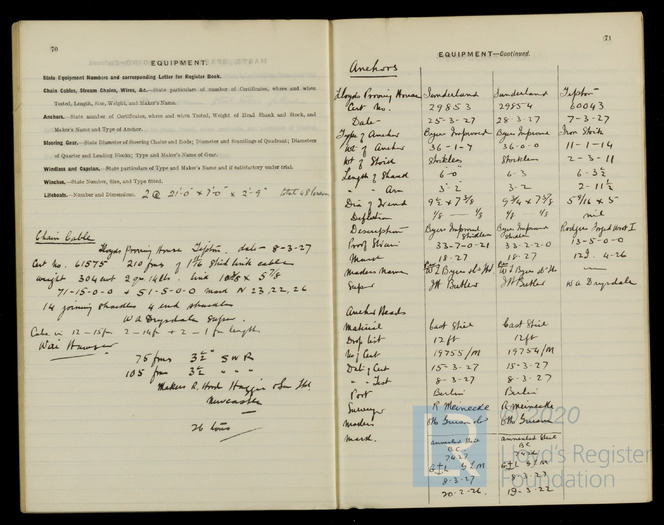 70
EQUIPMENT.
State Equipment Numbers and corresponding Letter for Register Book.
Chain Cables, Stream Chains, Wires, &c.—State particulars of number of Certificates, where and when
Tested, Length, Size, Weight, and Maker's Name.
Anchors.—State number of Certificates, where and when Tested, Weight of Head Shank and Stock, and
Maker's Name and Type of Anchor.
Steering Gear.—State Diameter of Steering Chains and Rods; Diameter and Scantlings of Quadrant; Diameters
of Quarter and Leading Blocks; Type and Maker's Name of Gear.
Windlass and Capstan.—State particulars of Type and Maker's Name and if satisfactory under trial.
Winches.—State Number, Size, and Type fitted.
Lifeboats.—Number and Dimensions. 2 @ 21'-0" x 7'-0" x 2'-9"
Chain Cable
Lloyds Proving House Tipton. date - 8-3-27
Cert No. 61575 210 fms of 1 9/16 Stud link cable
weight 304 cwt 2 qrs 14 lbs. link
71-15-0-0 + 51-5-0-0 mark N 23,22,26
14 joining shackles 4 end shackles
W A Drysdale Super.
Cable in 12-15 fm 2-14 f + 2-1 fm length.
Wire Hawser
75 fms 3½" S W R
105 fms 3½ " " "
Makers R. Hood Haggie & Son Ltd
Newcastle
26 tons
71
EQUIPMENT—Continued.
Anchors
Lloyds Proving House Sunderland Sunderland Tipton
Cert No. 29853 29854 60043
Date 25-3-27 28-3-27 7-3-27
Type of Anchor Byers Improved Byers Improve Iron Stock
Wt of Anchor 36-1-7 36-0-0 11-1-14
Wt of Stock Stockless Stockless 2-3-11
Length of Shank 6-0 6-3 6-3½
" " Arm 3-2 3-2 2-11½
Dia of Trend 9½ x 7 3/8 9¾ x 7 3/8 5 9/16 x 5
Deflection 1/8 — 1/8 1/8 1/8 nil
Description Byers Improved Stockless Byers Improve Stockless Rodgers
Proof Strain 33-7-0-21 33-2-2-0 13-5-0-0
Mark 18-27 18-27 4-26
Makers Name W L Byers & Co Ltd W L Byers & Co
Super J H Butler J H Butler W A Drysdale
Anchor Heads
Material Cast Steel Cast Steel
Drop test 12 ft 12 ft
No of Cert 19755/M 19754/M
Date of Cert 15-3-27 15-3-27
" " Test 8-3-27 8-3-27
Port Berlin Berlin
Surveyor R Meinecke R Meinecke
Makers Otto Gruson & Co Otto Gruson &
Mark. Annealed Steel annealed Steel
BC BC
7427 7426
8-3-27 8-3-27
20-2-26. 19-3-22
© 2020
LR
Lloyd's Register
Foundation